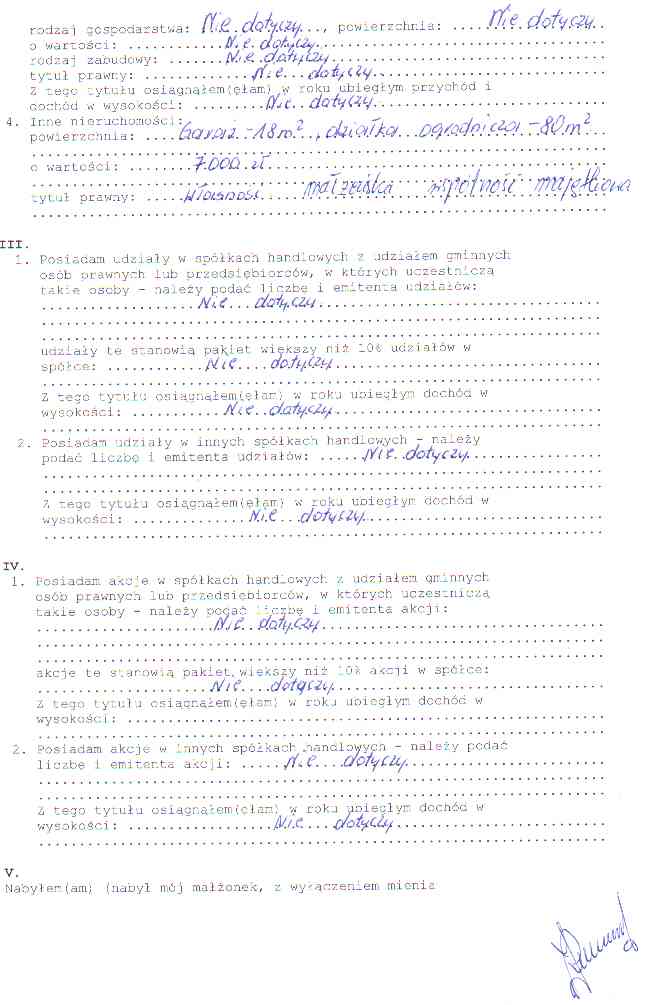 rodzaj gospodarstwa: Nie dotyczy..., powierzchnia: .....Nie dotyczy..
o wartości: ............Nie dotyczy...
rodzaj zabudowy: .......Nie dotyczy...
tytuł prawny: ..........Nie...dotyczy...
Z tego tytułu osiągnąłem(ęłam) w roku ubiegłym przychód i
dochód w wysokości: .........Nie...dotyczy...
4. Inne nieruchomości:
powierzchnia: ....Garaż - 18 m², działka ogrodnicza - 80 m²
o wartości: .......7.000 zł...
tytuł prawny: ....własność małżeńska wspólność majątkowa
III.
1. Posiadam udziały w spółkach handlowych z udziałem gminnych
osób prawnych lub przedsiębiorców, w których uczestniczą
takie osoby - należy podać liczbę i emitenta udziałów:
...Nie...dotyczy...
udziały te stanowią pakiet większy niż 10% udziałów w
spółce: ............Nie....dotyczy...
Z tego tytułu osiągnąłem(ęłam) w roku ubiegłym dochód w
wysokości: ...........Nie..dotyczy...
2. Posiadam udziały w innych spółkach handlowych - należy
podać liczbę i emitenta udziałów: .....Nie..dotyczy...
Z tego tytułu osiągnąłem(ęłam) w roku ubiegłym dochód w
wysokości: .............Nie...dotyczy...
IV.
1. Posiadam akcje w spółkach handlowych z udziałem gminnych
osób prawnych lub przedsiębiorców, w których uczestniczą
takie osoby - należy podać liczbę i emitenta akcji:
...Nie..dotyczy...
akcje te stanowią pakiet większy niż 10% akcji w spółce:
...Nie....dotyczy...
Z tego tytułu osiągnąłem(ęłam) w roku ubiegłym dochód w
wysokości: ...
2. Posiadam akcje w innych spółkach handlowych - należy podać
liczbę i emitenta akcji: .....Nie...dotyczy...
Z tego tytułu osiągnąłem(ęłam) w roku ubiegłym dochód w
wysokości: .................Nie...dotyczy...
V.
Nabyłem(am) (nabył mój małżonek, z wyłączeniem mienia